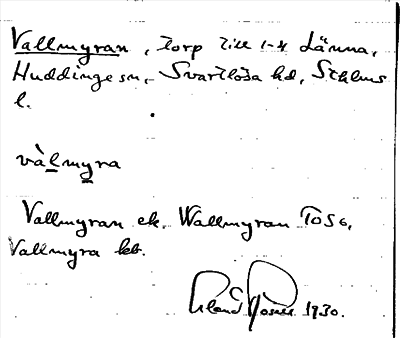 Vallmyran, torp till 1-4 Länna,
Huddinge sn, Svartlösa hd, Sthlms
l.
vàlmyra
Vallmyran ek. Wallmyran
Vallmyra kb.
1930.